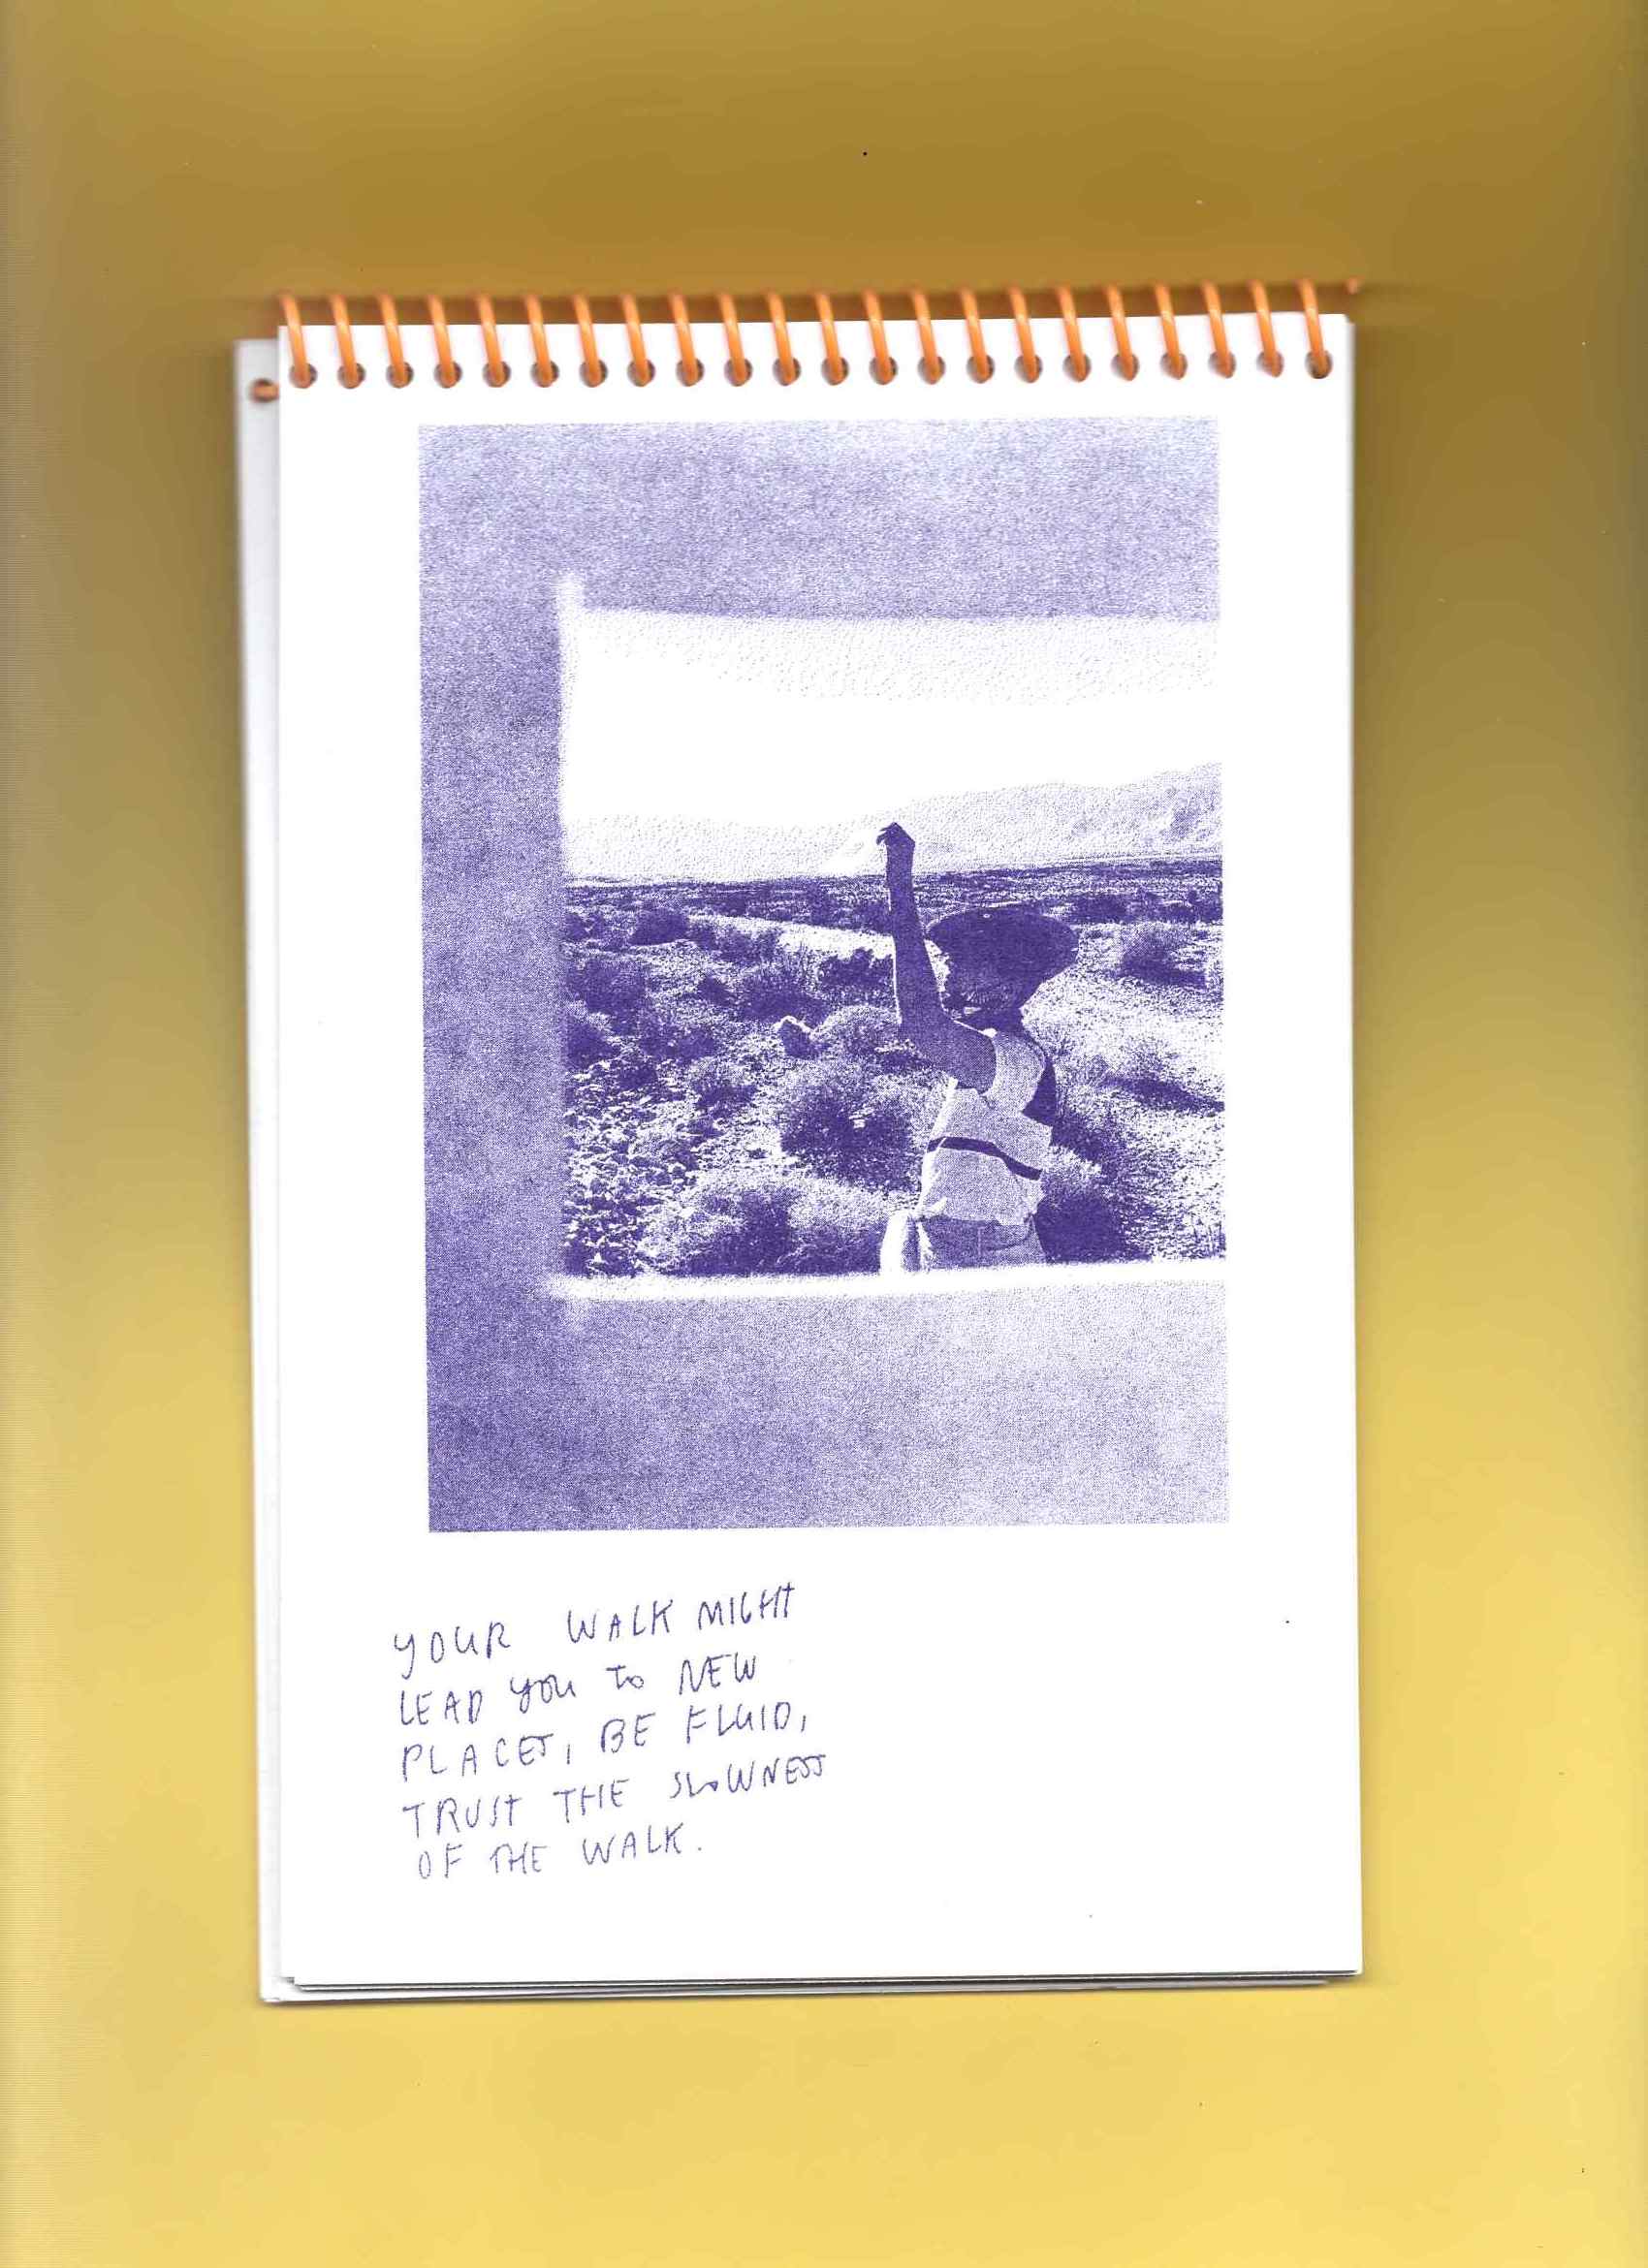 YOUR WALK MIGHT
LEAD YOU TO NEW
PLACES, BE FLUID,
TRUST THE SLOWNESS
OF THE WALK.